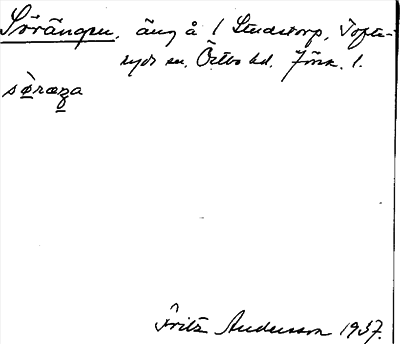 Sörängen, äng å 1 Studstorp, Tofte-
ryds sn, Östbo hd. Jönk. l.
sø̀ræŋa
Fritz Andersson 1937.